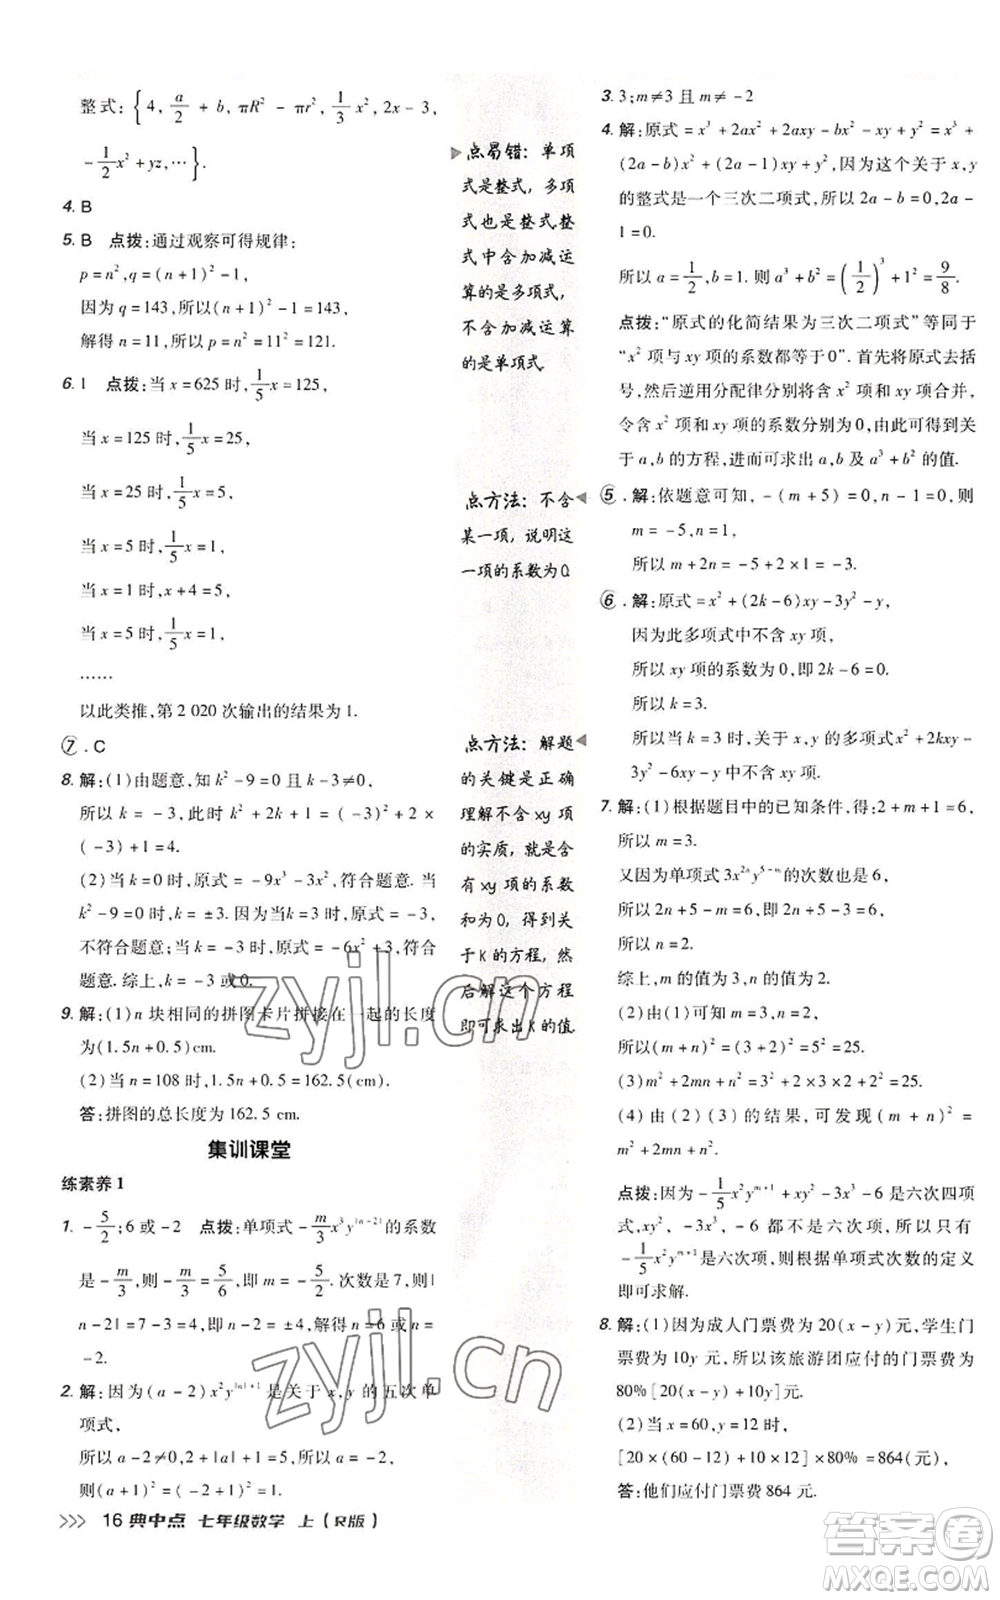 整式:{4, a/2 + b, πR² - πr², 1/3 x², 2x - 3,
-1/2 x² + yz, …}.
4. B
5. B 点拨:通过观察可得规律:
p = n², q = (n + 1)² - 1,
因为 q = 143,所以(n + 1)² - 1 = 143,
解得 n = 11,所以 p = n² = 11² = 121.
6. 1 点拨:当 x = 625 时, 1/5 x = 125,
当 x = 125 时, 1/5 x = 25,
当 x = 25 时, 1/5 x = 5,
当 x = 5 时, 1/5 x = 1,
当 x = 1 时, x + 4 = 5,
当 x = 5 时, 1/5 x = 1,
……
以此类推,第 2 020 次输出的结果为 1.
⑦. C
8. 解:(1)由题意,知 k² - 9 = 0 且 k - 3 ≠ 0,
所以 k = -3,所以 k² + 2k + 1 = (-3)² + 2 ×
(-3) + 1 = 4.
(2)当 k = 0 时,原式 = -9x³ - 3x²,符合题意. 当
k² - 9 = 0 时, k = ±3. 但当 k = 3 时,原式 = -3,
不符合题意;当 k = -3 时,原式 = -6x² + 3,符合
题意. 综上, k = -3 或 0.
9. 解:(1)n 块相同的拼图卡片拼接在一起的长度
为(1.5n + 0.5) cm.
(2)当 n = 108 时,1.5n + 0.5 = 162.5(cm).
答:拼图的总长度为 162.5 cm.
集训课堂
练素养 1
1. -5/2;6 或 -2 点拨:单项式 -m/3 x³y^|n-2| 的系数
是 -m/3,则 -m/3 = 5/6, m = -5/2. 次数是 7,则|
n - 2| = 7 - 3 = 4,则 n - 2 = ±4,所以 n = 6 或 n =
-2.
2. 解:因为(a - 2)x²y^|a|+1 是关于 x, y 的五次单
项式,
所以 a - 2 ≠ 0,且 2 + |a| + 1 = 5,所以 a = -2,
则(a + 1)² = (-2 + 1)² = 1.
>>> 16 典中点 七年级数学 上(R版)
点易错: 单项
式是整式, 多项
式也是整式整
式中含加减运
算的是多项式,
不含加减运算
的是单项式.
点方法: 不含
某一项, 说明这
一项的系数为 0.
点方法: 解题
的关键是正确
理解不含 xy 项
的实质, 就是含
有 xy 项的系数
和为 0, 得到关
于 K 的方程, 然
后解这个方程
即可求出 K 的值.
3. 3;m ≠ 3 且 m ≠ -2
4. 解:原式 = x³ + 2ax² + 2axy - bx² - xy + y² = x³ +
(2a - b)x² + (2a - 1)xy + y²,因为这个关于 x, y
的整式是一个三次二项式,所以 2a - b = 0,2a -
1 = 0.
所以 a = 1/2, b = 1. 则 a³ + b² = (1/2)³ + 1² = 9/8.
点拨:“原式的化简结果为三次二项式”等同于
“x² 项与 xy 项的系数都等于 0”. 首先将原式去括
号,然后逆用分配律分别将含 x² 项和 xy 项合并,
令含 x² 项和 xy 项的系数分别为 0,由此可得到关
于 a, b 的方程,进而可求出 a, b 及 a³ + b² 的值.
⑤. 解:依题意可知, -(m + 5) = 0, n - 1 = 0,则
m = -5, n = 1.
所以 m + 2n = -5 + 2 × 1 = -3.
⑥. 解:原式 = x² + (2k - 6)xy - 3y² - y,
因为此多项式中不含 xy 项,
所以 xy 项的系数为 0,即 2k - 6 = 0.
所以 k = 3.
所以当 k = 3 时,关于 x, y 的多项式 x² + 2kxy -
3y² - 6xy - y 中不含 xy 项.
7. 解:(1)根据题目中的已知条件,得:2 + m + 1 = 6,
所以 m = 3.
又因为单项式 3x²ⁿy^5-m 的次数也是 6,
所以 2n + 5 - m = 6,即 2n + 5 - 3 = 6,
所以 n = 2.
综上, m 的值为 3, n 的值为 2.
(2)由(1)可知 m = 3, n = 2,
所以(m + n)² = (3 + 2)² = 25.
(3)m² + n² + 2mn = 3² + 2² + 2 × 3 × 2 = 25.
(4)由(2)(3)的结果,可发现(m + n)² =
m² + n² + 2mn.
点拨:因为 -1/5 x²y^m+1 + xy² - 3x³ - 6 是六次四项
式, xy², -3x³, -6 都不是六次项,所以只有
-1/5 x²y^m+1 是六次项,则根据单项式次数的定义
即可求解.
8. 解:(1)因为成人门票费为 20(x - y)元,学生门
票费为 10y 元,所以该旅游团应付的门票费为
80%[20(x - y) + 10y]元.
(2)当 x = 60, y = 12 时,
[20 × (60 - 12) + 10 × 12] × 80% = 864(元).
答:他们应付门票费 864 元.
zyjl.cn
zyjl.cn
答案圈
MXQE.COM